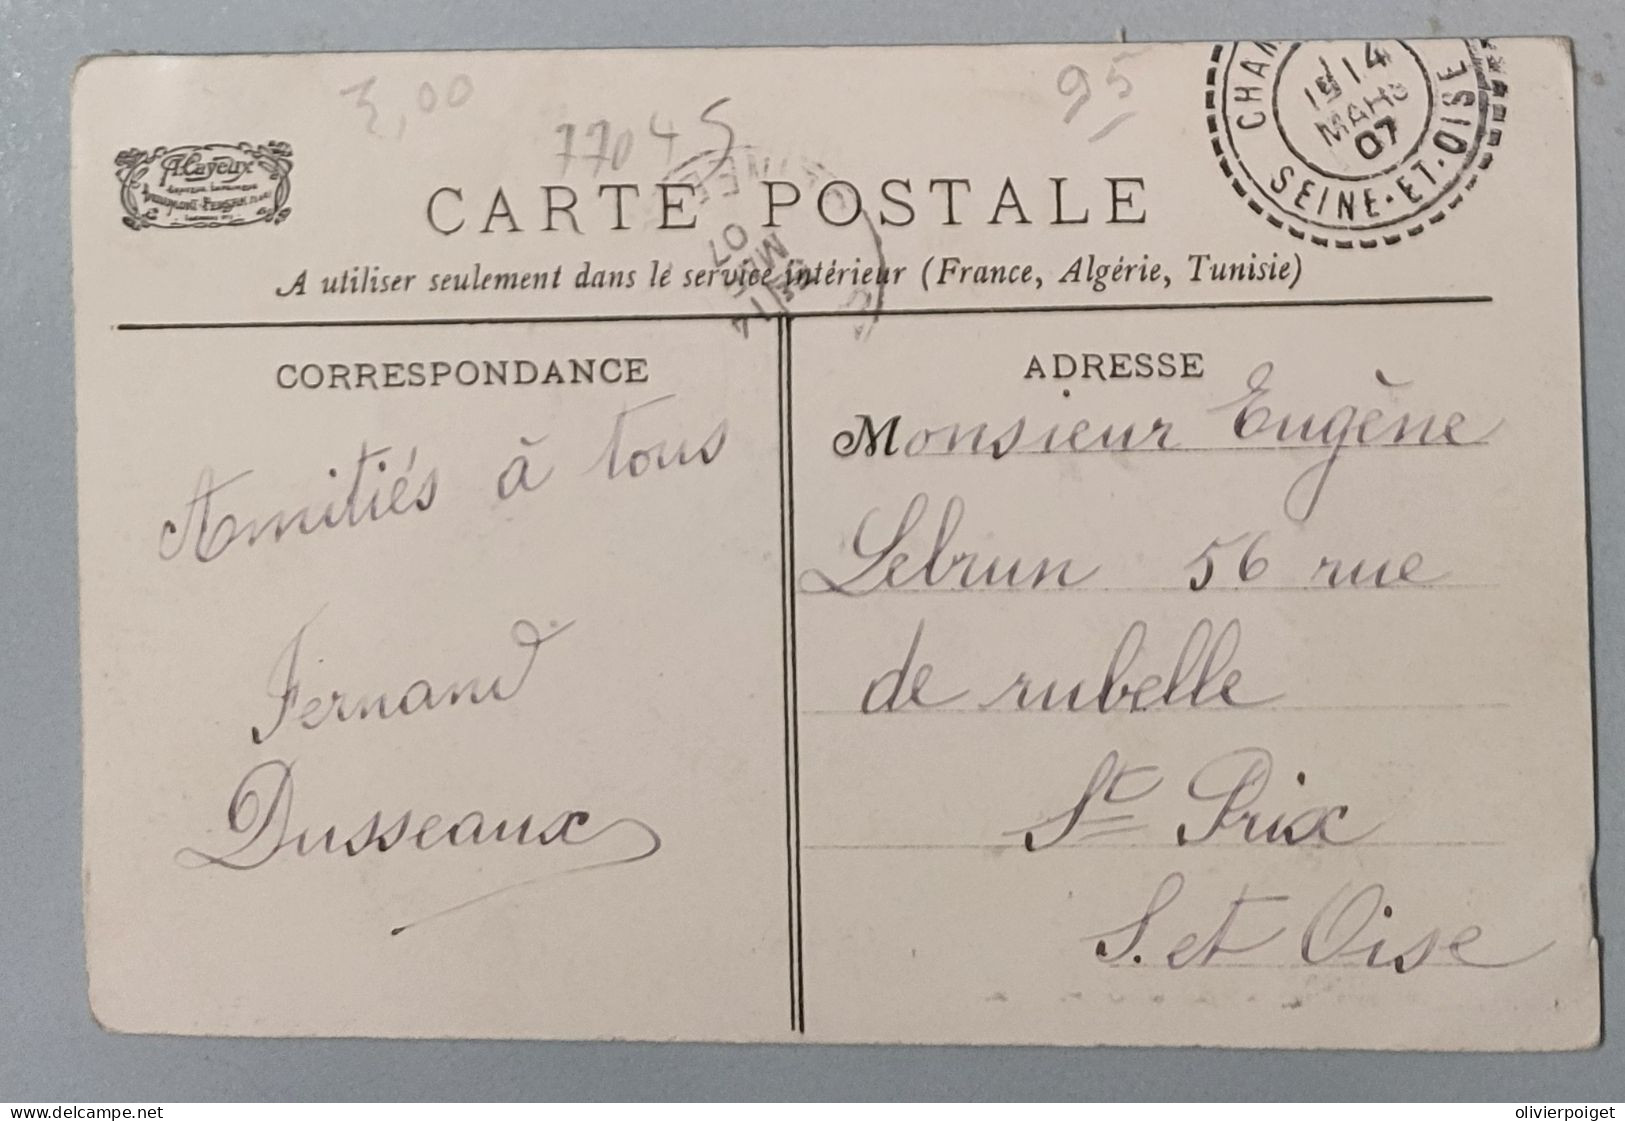 3,00
77045
95
CHAM
14
MARS
07
SEINE-ET-OISE
A. Cayeux
CARTE POSTALE
07
A utiliser seulement dans le service intérieur (France, Algérie, Tunisie)
CORRESPONDANCE
Amitiés à tous
Fernand
Dusseaux
ADRESSE
Monsieur Eugène
Lebrun 56 rue
de rubelle
St Prix
S. et Oise
delcampe.net
olivierpoiget